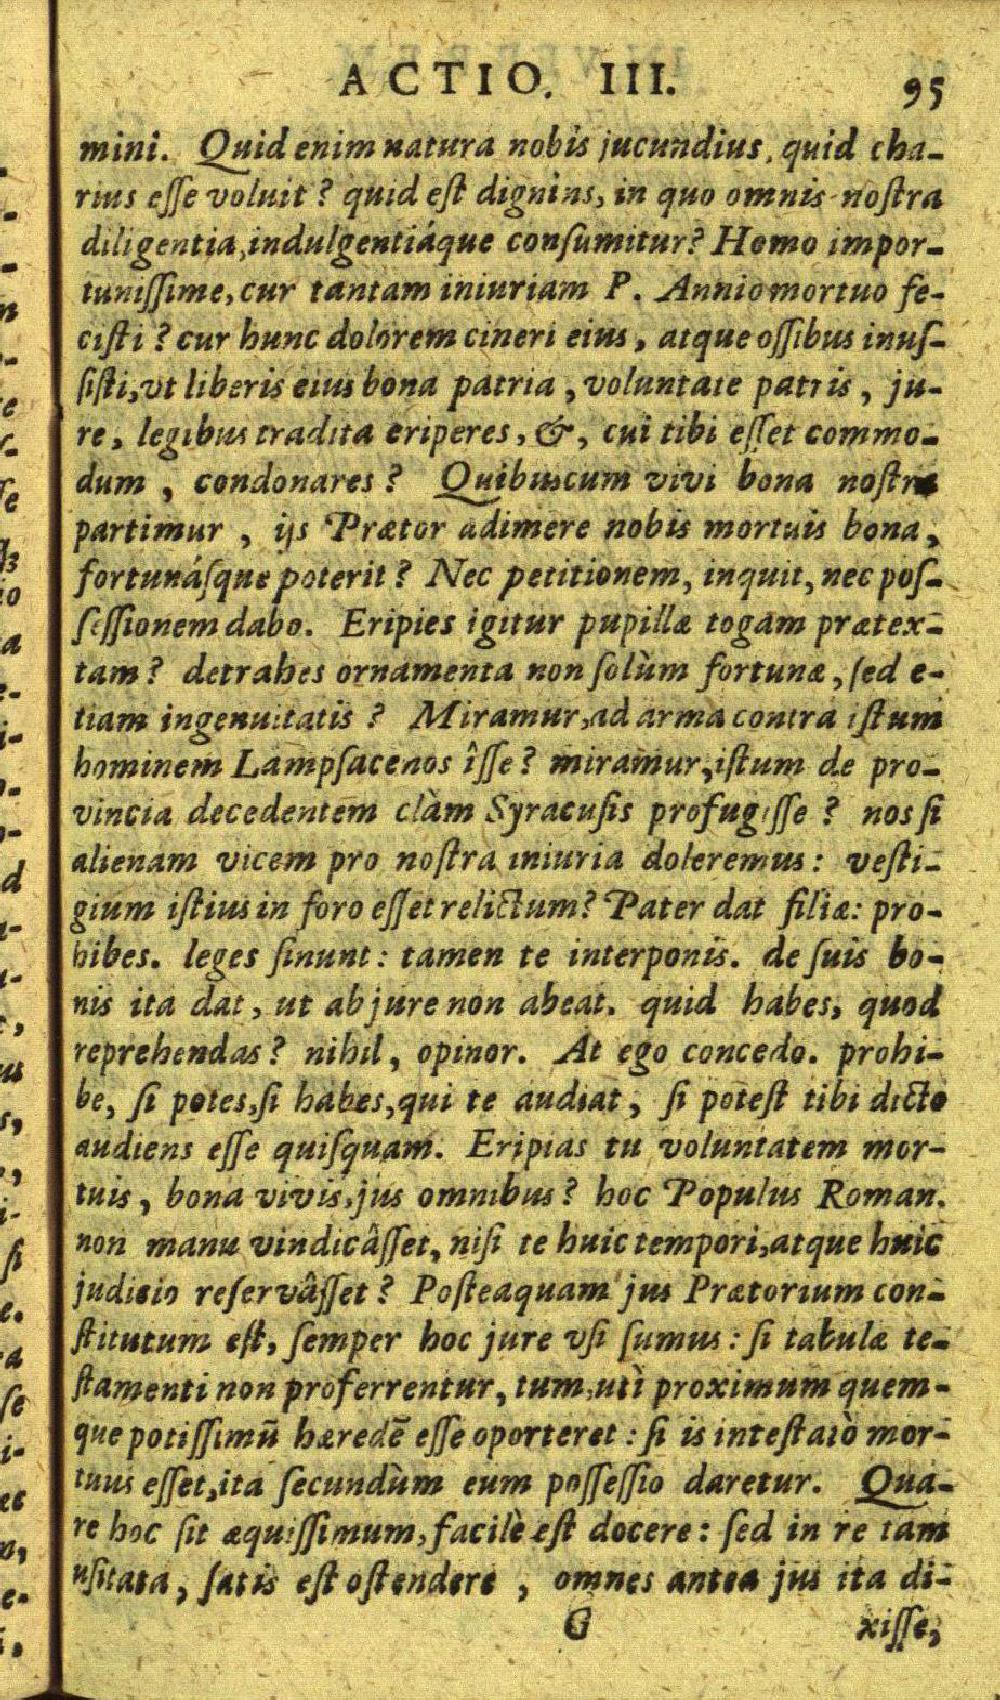 ACTIO. III. 95
mini. Quid enim natura nobis jucundius, quid cha-
rius esse voluit? quid est dignius, in quo omnis nostra
diligentia, indulgentiáque consumitur? Homo impor-
tunissime, cur tantam iniuriam P. Annio mortuo fe-
cisti? cur hunc dolorem cineri eius, atque ossibus inus-
sisti, vt liberis eius bona patria, voluntate patris, ju-
re, legibus tradita eriperes, &, cui tibi esset commo-
dum, condonares? Quibuscum vivi bona nostra
partimur, ijs Prætor adimere nobis mortuis bona,
fortunásque poterit? Nec petitionem, inquit, nec pos-
sessionem dabo. Eripies igitur pupillæ togam prætex-
tam? detrahes ornamenta non solùm fortunæ, sed e-
tiam ingenuitatis? Miramur, ad arma contra istum
hominem Lampsacenos îsse? miramur, istum de pro-
vincia decedentem clàm Syracusis profugisse? nos si
alienam vicem pro nostra iniuria doleremus: vesti-
gium istius in foro esset relictum? Pater dat filiæ: pro-
hibes. leges sinunt: tamen te interponis. de suis bo-
nis ita dat, ut ab jure non abeat. quid habes, quod
reprehendas? nihil, opinor. At ego concedo. prohi-
be, si potes, si habes, qui te audiat, si potest tibi dicto
audiens esse quisquam. Eripias tu voluntatem mor-
tuis, bona vivis, jus omnibus? hoc Populus Roman.
non manu vindicâsset, nisi te huic tempori, atque huic
judicio reservâsset? Posteaquam jus Prætorium con-
stitutum est, semper hoc jure vsi sumus: si tabulæ te-
stamenti non proferrentur, tum, utì proximum quem-
que potissimũ hæredẽ esse oporteret: si is intestatò mor-
tuus esset, ita secundùm eum possessio daretur. Qua-
re hoc sit æquissimum, facilè est docere: sed in re tam
usitata, satis est ostendere, omnes antea jus ita di-
G xisse,